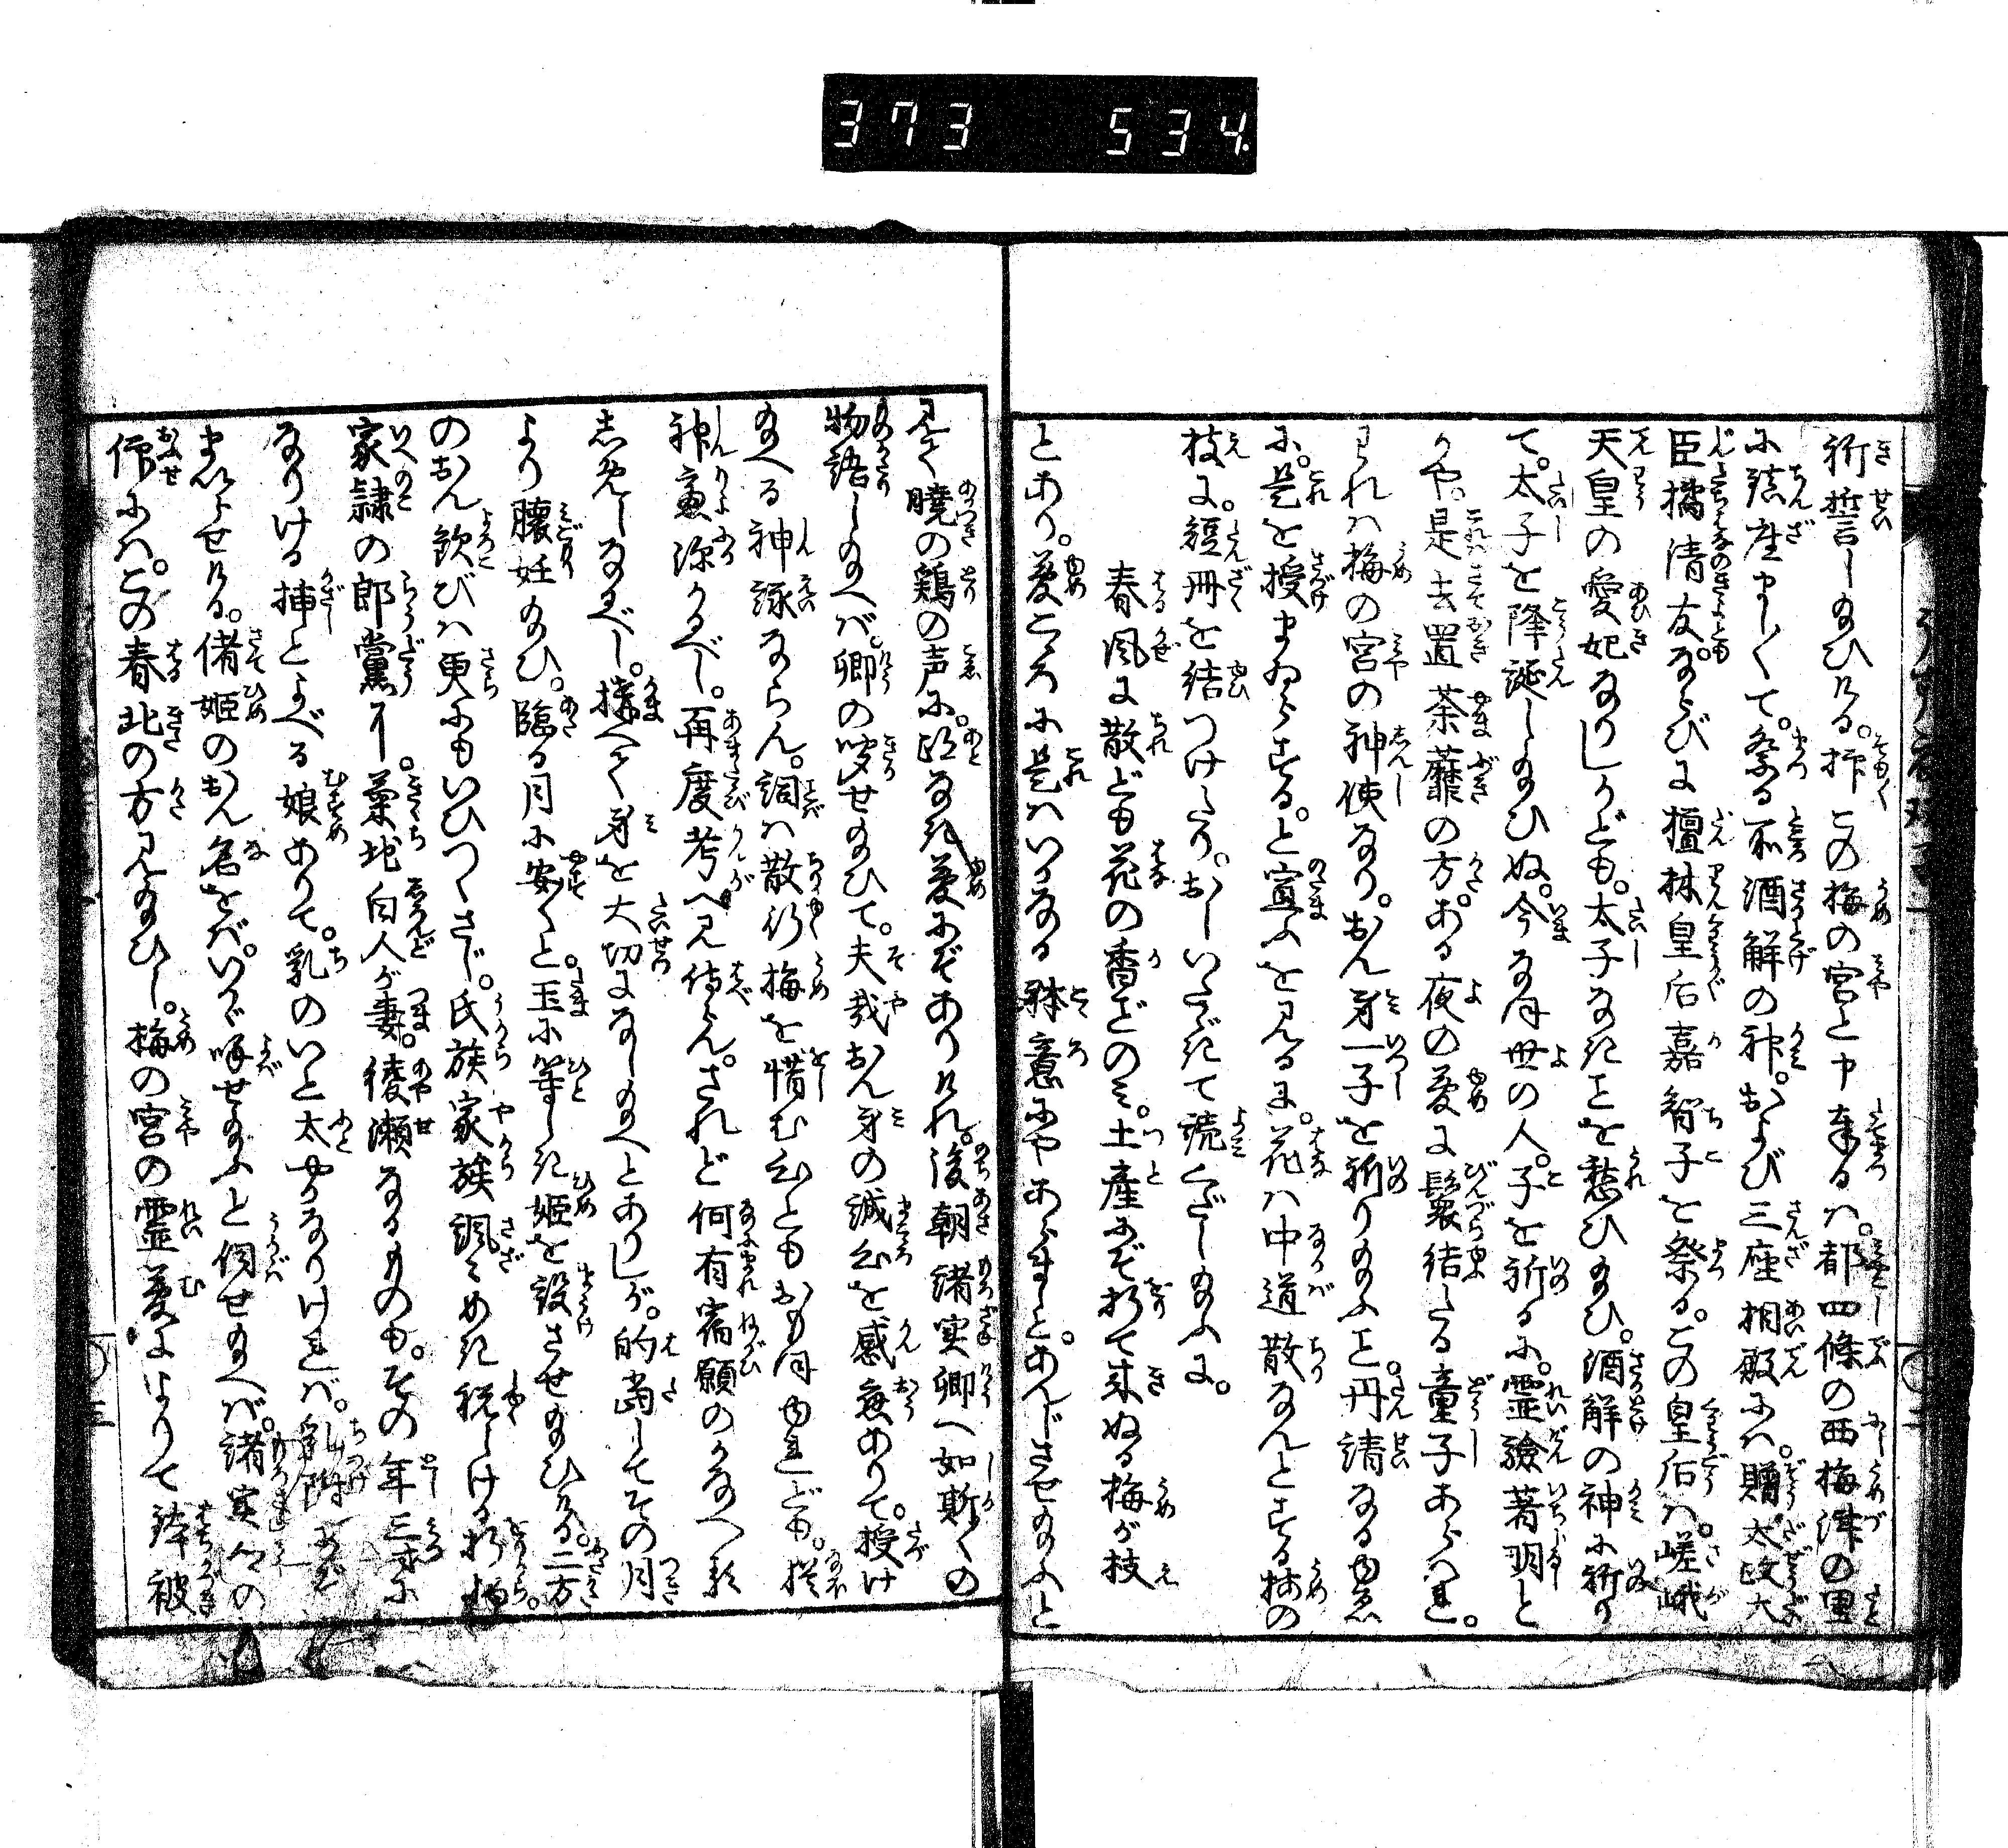 373 534
祈誓し給ひける。抑この梅の宮と申奉るは。都四條の西梅津の里
に鎮座まし〳〵て。祭る所酒解の神。および三座相殿には。贈太政大
臣橘清友。ならびに檀林皇后嘉智子を祭る。この皇后は。嵯峨
天皇の愛妃なりしかども。太子なきことを愁ひ給ひ。酒解の神に祈り
て。太子を降誕し給ひぬ。今なほ世の人。子を祈るに。霊験著明と
かや。是は去置荼蘼の方。ある夜の夢に鬟結たる童子あらはれ。
われは梅の宮の神使なり。おん身一子を祈り給ふこと。丹誠なるゆゑ
に。是を授まゐらする。と宣ふを見るに。花は中道散なんとする梅の
枝に。短冊を結つけたり。おしいたゞきて読くだし給ふに。
春風に散ども花の香どのみ土産にぞ折て来ぬる梅が枝
とあり。夢こゝろに是はいかなる祥意にやあらまと。あんじさせ給ふと
見て暁の鶏の声に。跡なき夢にぞありける。後朝緒実卿へ如斯〳〵の
物語し給へば。卿の咲せ給ひて。夫哉おん身の誠心を感応ありて。授け
給へる神詠ならん。詞は散行梅を惜む心ともおもほゆれども。猶
神慮深かるべし。再度考へ見侍らん。されど何有宿願のかなへる
しるしなるべし。構へて身を大切になし給へとありしが。的当してその月
より懐妊給ひ。臨る月に安〳〵と。玉に等しき姫を設させ給ひける。二方
のおん歓びは更にもいひつくさじ。氏族家族諷ざめき祝しける折柄。
家隷の郎党に。菊地白人が妻。綾瀬なるもの。その年三才に
なりける挿とよべる娘ありて。乳のいと太やかなりければ。乳附に
まゐらせける。偖姫のおん名をば。いかゞ呼せ給ふと伺せ給へば。諸実公の
仰には。この春北の方見給ひし。梅の宮の霊夢によりて鉢被
三